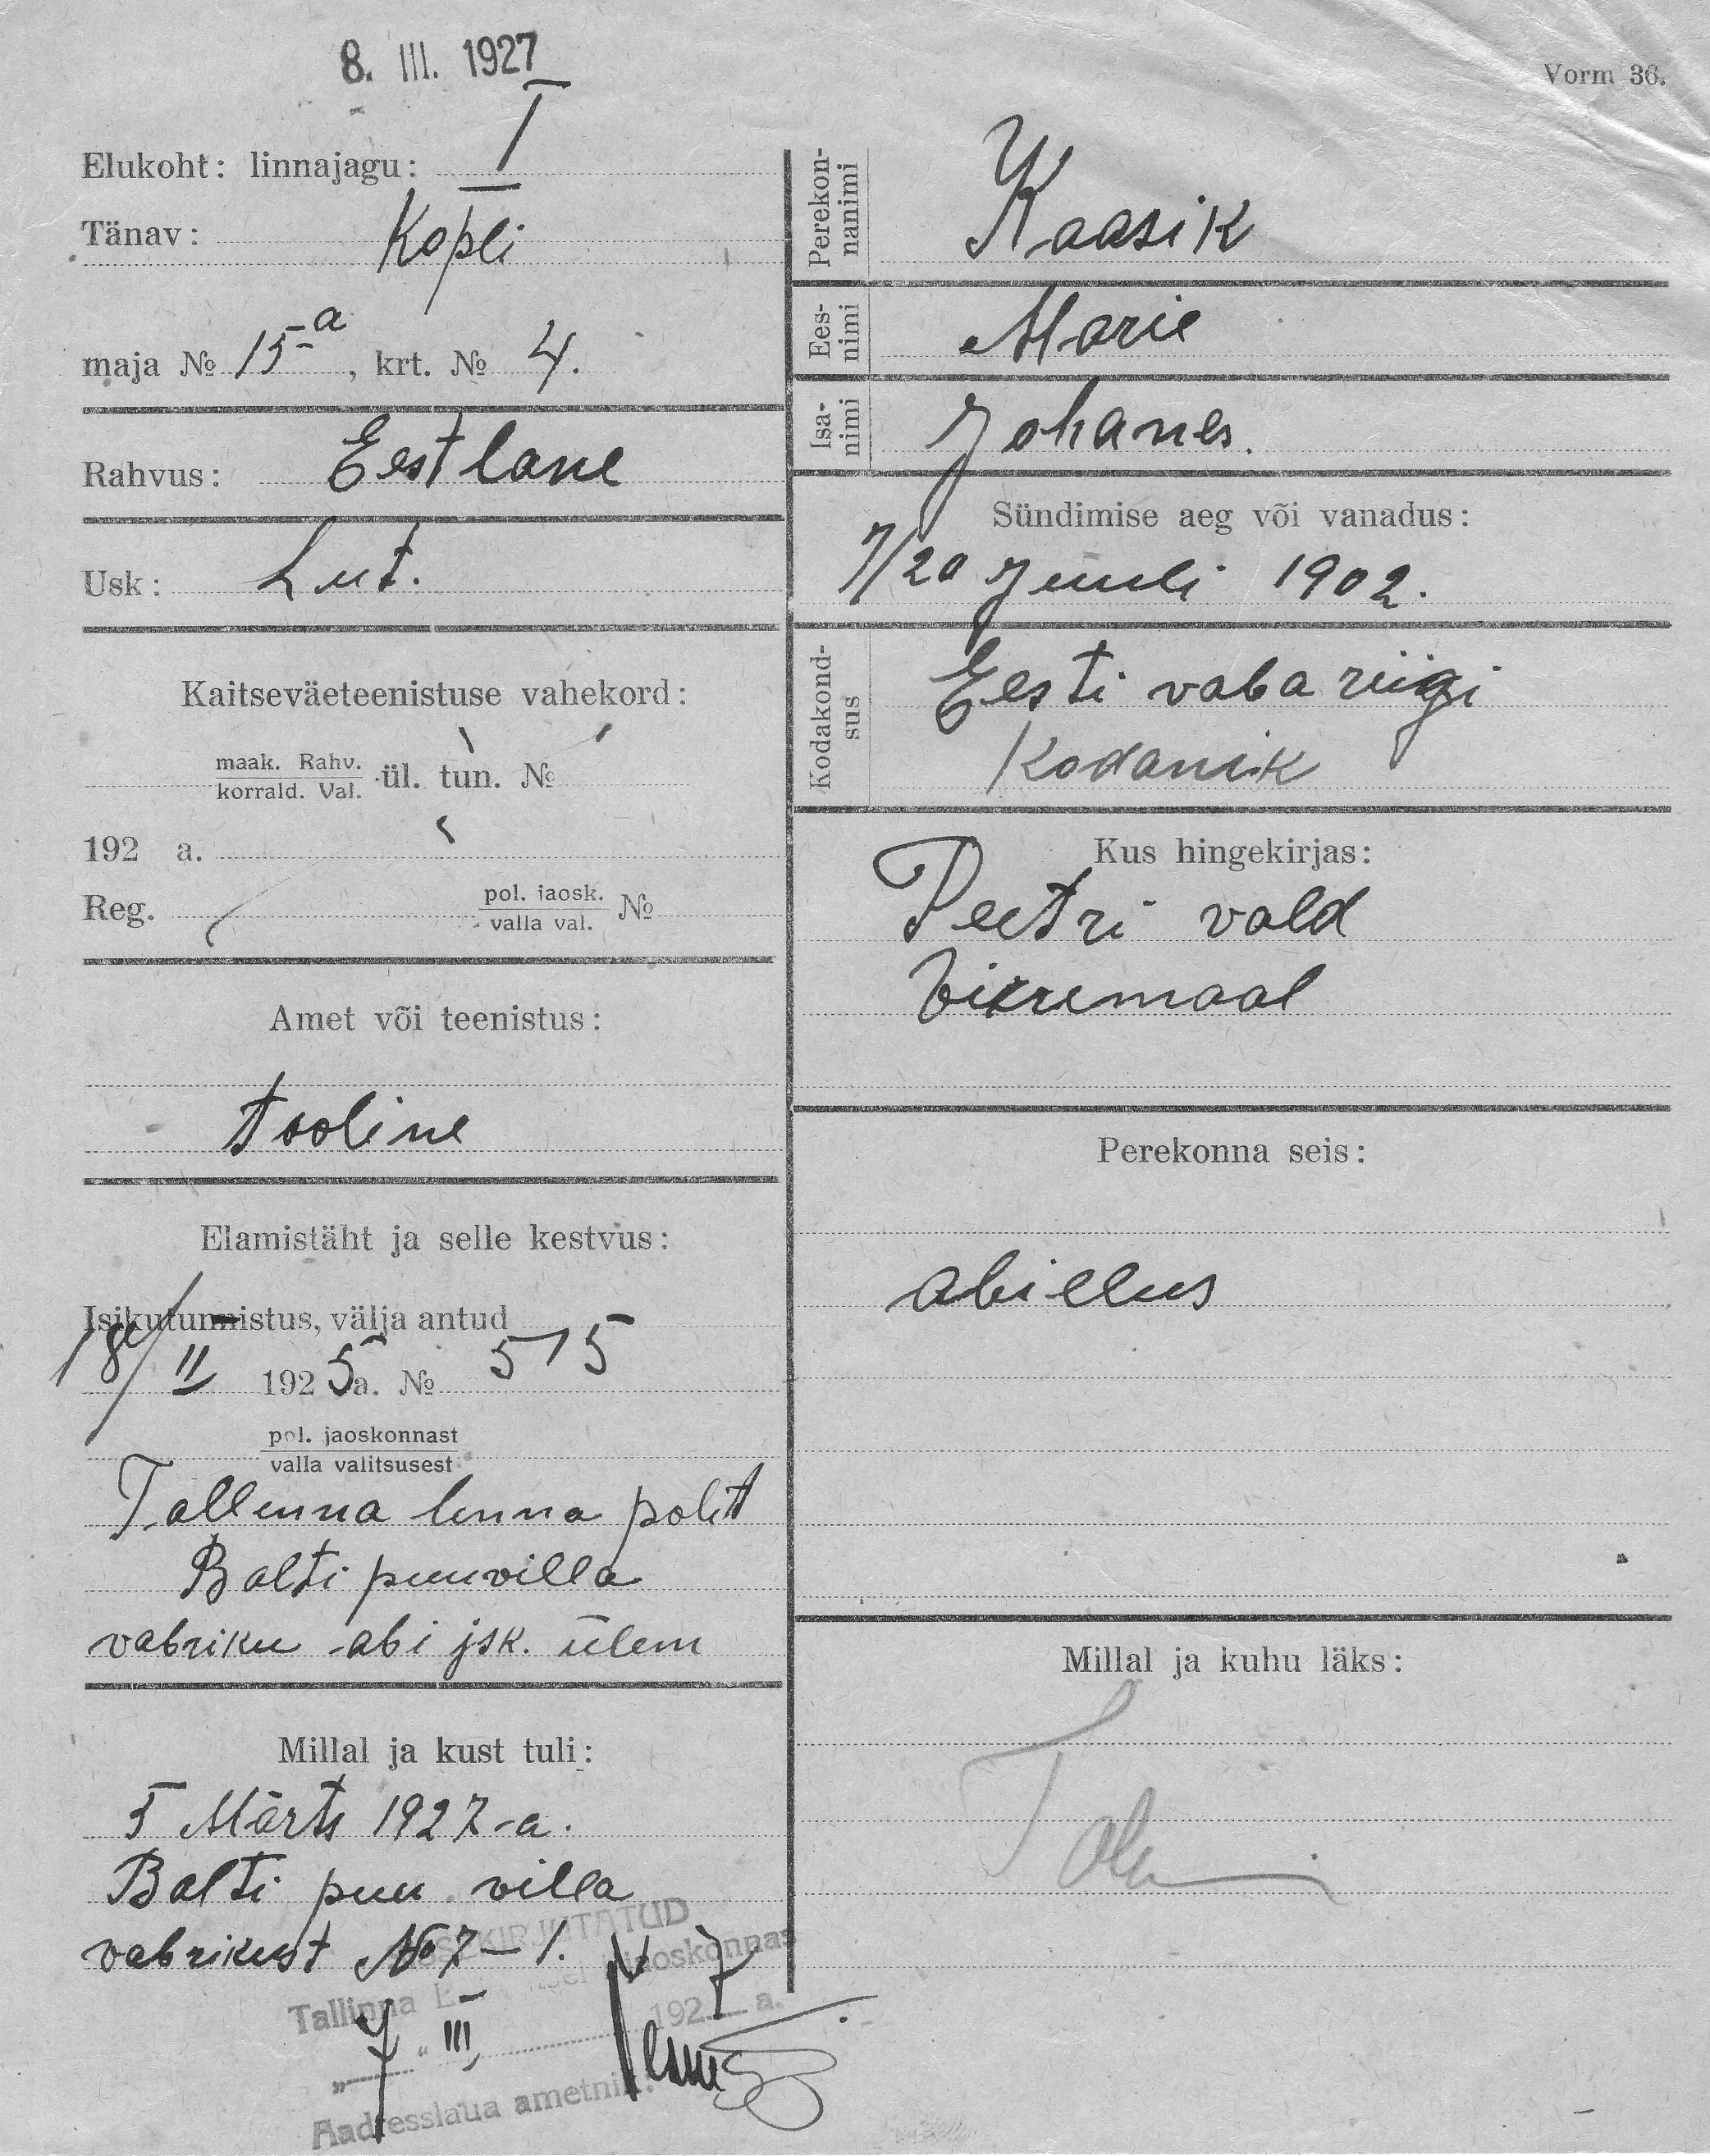 8. III. 1927
Vorm 36.
Elukoht: linnajagu: I
Tänav: Kopli
maja № 15-a, krt. № 4.
Rahvus: Eestlane
Usk: Lut.
Kaitseväeteenistuse vahekord:
maak. Rahv.
korrald. Val. ül. tun. №
192 a.
Reg. pol. jaosk.
valla val. №
Amet või teenistus:
tööline
Elamistäht ja selle kestvus:
Isikutunnistus, välja antud
18/II 1925 a. № 515
pol. jaoskonnast
valla valitsusest
Tallinna linna polit
Balti puuvilla
vabriku abi jsk. ülem
Millal ja kust tuli:
5 Märts 1927-a.
Balti puu villa
vabrikust № 7-1.
SISSEKIRJUTATUD
Tallinna jaoskonnas
7 " III 192 7 a.
Aadresslaua ametnik:
Perekon-
nanimi Kaasik
Ees-
nimi Marie
Isa-
nimi Johanes.
Sündimise aeg või vanadus:
7/20 Juuli 1902.
Kodakond-
sus Eesti vaba riigi
Kodanik
Kus hingekirjas:
Peetri vald
Virumaal
Perekonna seis:
abiellus
Millal ja kuhu läks: